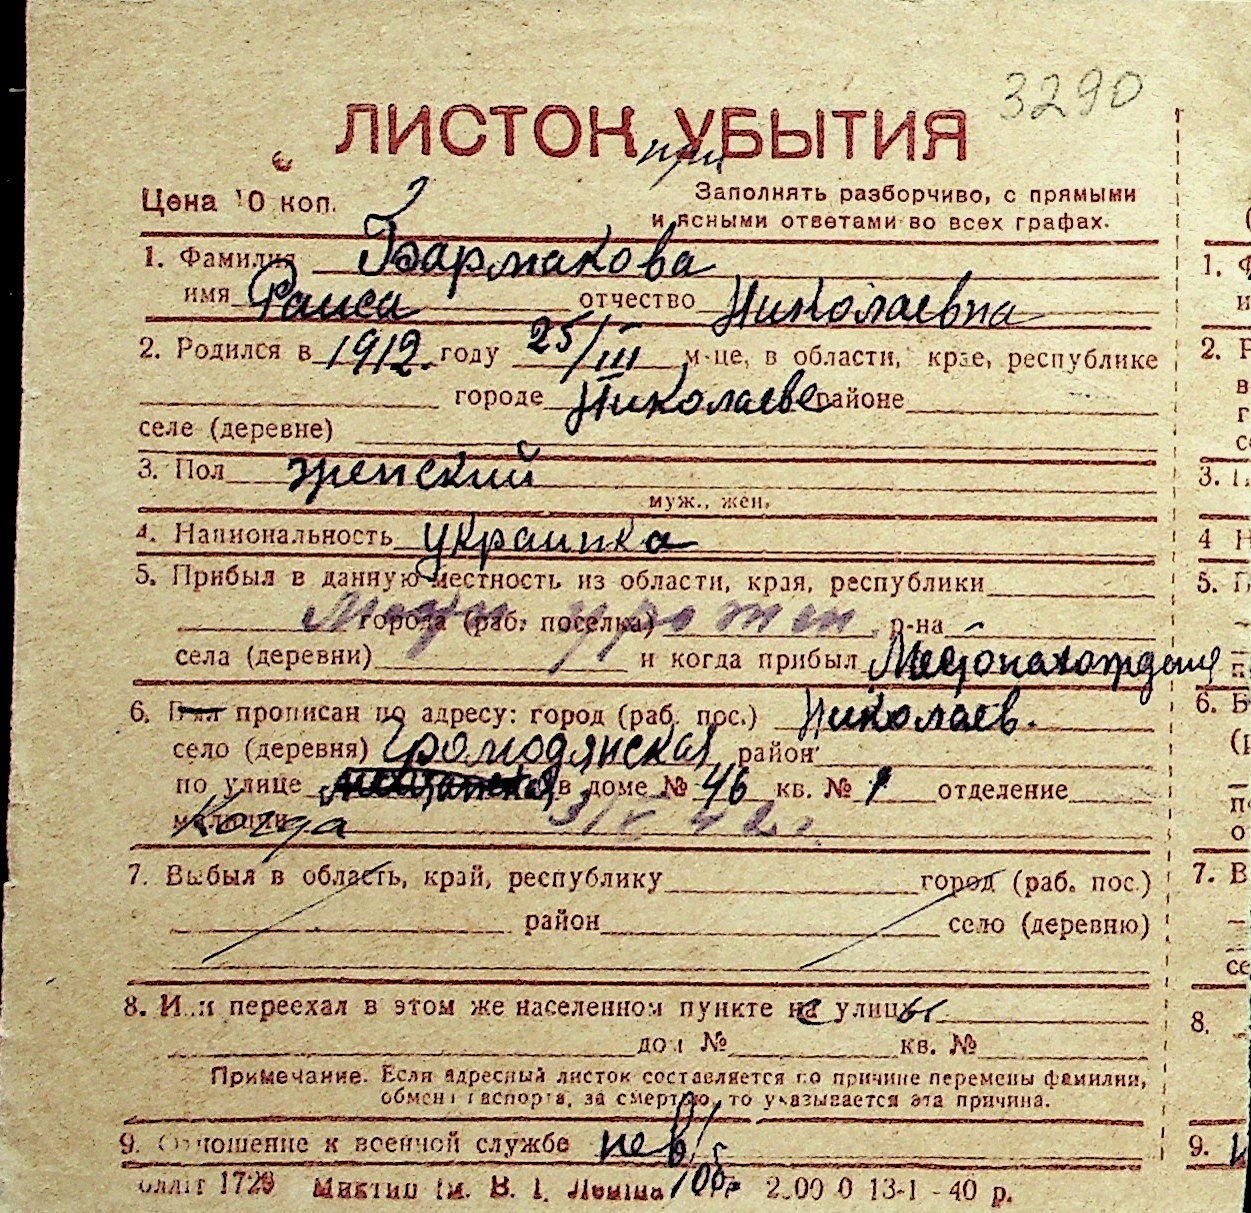 3290
ЛИСТОК УБЫТИЯ
при
Цена 10 коп.
Заполнять разборчиво, с прямыми
и ясными ответами во всех графах.
1. Фамилия Бармакова
имя Раиса отчество Николаевна
2. Родился в 1912. году 25/III м-це, в области, крае, республике
городе Николаеве районе
селе (деревне)
3. Пол женский
муж., жен.
4. Национальность украинка
5. Прибыл в данную местность из области, края, республики
города (раб. поселка) урожен. р-на
села (деревни) и когда прибыл Местонахождения
6. Был прописан по адресу: город (раб. пос.) Николаев.
село (деревня) Громодянская район
по улице в доме № 46 кв. № 1 отделение
милиции Когда 42 г.
7. Выбыл в область, край, республику город (раб. пос.)
район село (деревню)
8. Или переехал в этом же населенном пункте на с улицы
дом № кв. №
Примечание. Если адресный листок составляется по причине перемены фамилии,
обмена паспорта, за смертью, то указывается эта причина.
9. Отношение к военной службе нев/об
1729 им. В. И. Ленина 13-1 - 40 р.
1.
2.
3.
4
5.
6.
7.
8.
9.